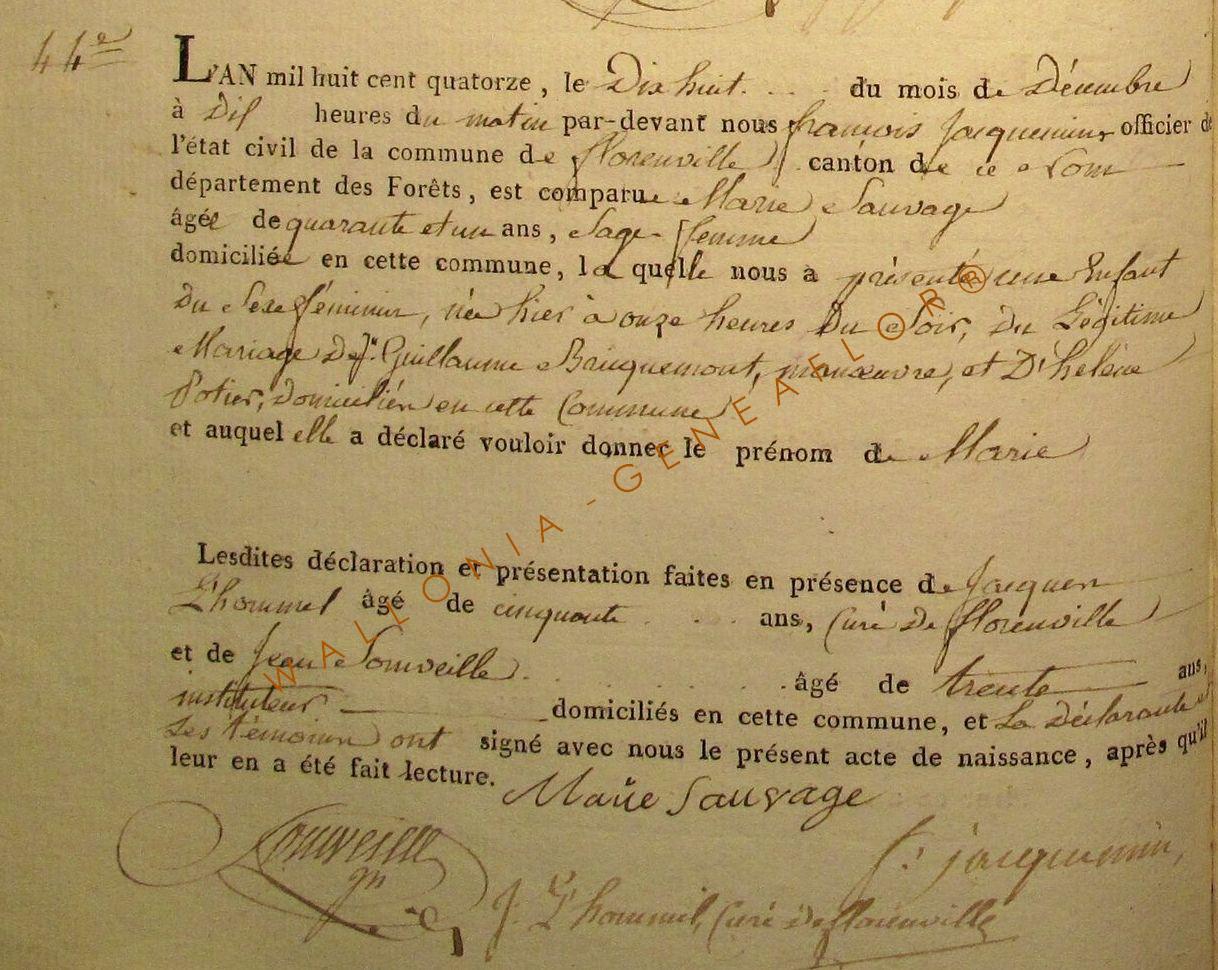 44e
L'AN mil huit cent quatorze, le Dix huit . . . du mois de Décembre
à Dix heures du matin par-devant nous françois Jacqueminin officier de
l'état civil de la commune de florenville canton de ce Nom
département des Forêts, est comparue Marie Sauvage
âgée de quarante et un ans, Sage femme
domiciliée en cette commune, la quelle nous a présenté une Enfant
Du Sexe féminin, née hier à onze heures Du Soir, Du Légitime
Mariage De Jn Guillaume Briquemont, manœuvre, et D'hélène
Potier, Domiciliés en cette Commune
et auquel elle a déclaré vouloir donner le prénom de Marie
Lesdites déclaration et présentation faites en présence de Jacques
L'hommel âgé de cinquante . . . ans, Curé De florenville
et de Jean Somveille . . . . âgé de trente ans,
instituteur domiciliés en cette commune, et La Déclarante et
Les témoins ont signé avec nous le présent acte de naissance, après qu'il
leur en a été fait lecture.
Marie Sauvage
Somveille
f: jacqueminin,
J. L'hommel, Curé De florenville
WALLONIA-GENEAFLOR®